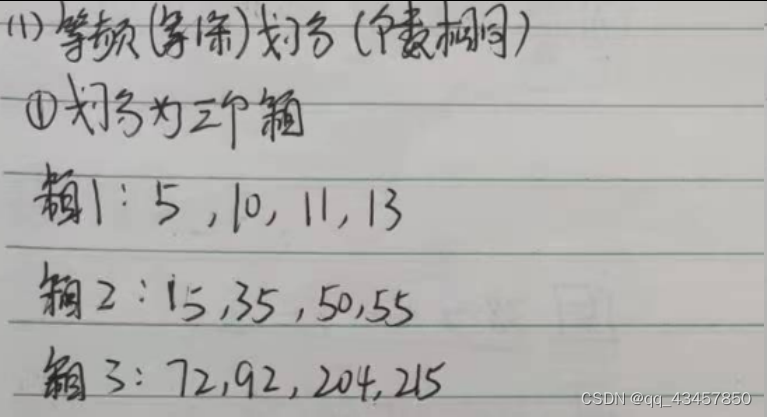 (1) 等频(等深)划分(个数相同)
①划分为三个箱
箱1: 5, 10, 11, 13
箱2: 15, 35, 50, 55
箱3: 72, 92, 204, 215
CSDN @qq_43457850